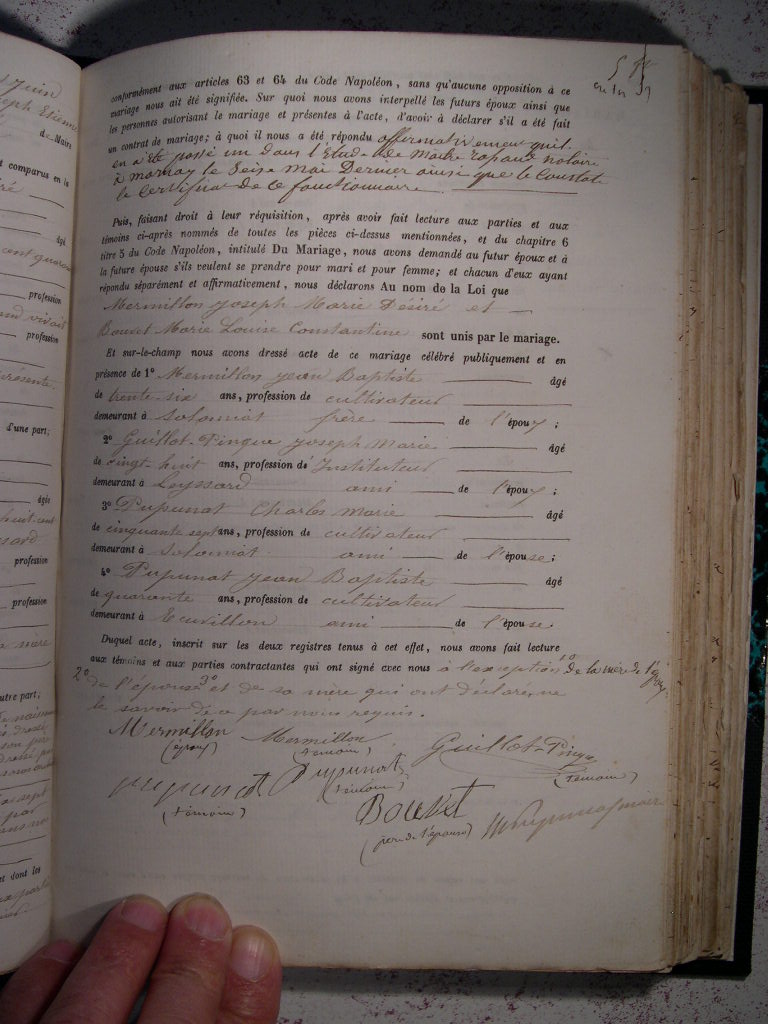 conformément aux articles 63 et 64 du Code Napoléon, sans qu'aucune opposition à ce
mariage nous ait été signifiée. Sur quoi nous avons interpellé les futurs époux ainsi que
les personnes autorisant le mariage et présentes à l'acte, d'avoir à déclarer s'il a été fait
un contrat de mariage; à quoi il nous a été répondu affirmativement qu'il
en a été passé un dans l'Etude de Maître notaire
à mornay le Seize Mai Dernier ainsi que le Constate
le Certificat de ce fonctionnaire
Puis, faisant droit à leur réquisition, après avoir fait lecture aux parties et aux
témoins ci-après nommés de toutes les pièces ci-dessus mentionnées, et du chapitre 6
titre 5 du Code Napoléon, intitulé Du Mariage, nous avons demandé au futur époux et à
la future épouse s'ils veulent se prendre pour mari et pour femme; et chacun d'eux ayant
répondu séparément et affirmativement, nous déclarons Au nom de la Loi que
Mermillon Joseph Marie Désiré et
Bouvet Marie Louise Constantine sont unis par le mariage.
Et sur-le-champ nous avons dressé acte de ce mariage célébré publiquement et en
présence de 1° Mermillon Jean Baptiste âgé
de trente-six ans, profession de cultivateur
demeurant à Solomiat frère de l'époux;
2° Guillot-Pingue Joseph Marie âgé
de vingt-huit ans, profession d'Instituteur
demeurant à Leyssard ami de l'époux;
3° Pupunat Charles Marie âgé
de cinquante sept ans, profession de cultivateur
demeurant à Solomiat ami de l'épouse;
4° Pupunat Jean Baptiste âgé
de quarante ans, profession de cultivateur
demeurant à ami de l'épouse.
Duquel acte, inscrit sur les deux registres tenus à cet effet, nous avons fait lecture
aux témoins et aux parties contractantes qui ont signé avec nous à l'exception 1° de la mère de l'époux
2° de l'épouse 3° et de sa mère qui ont déclaré ne
le savoir de ce par nous requis.
Mermillon Mermillon Guillot-Pingue
(époux) (témoin) (témoin)
pupunat Pupunat
(témoin) (témoin)
Bouvet
(père de l'épouse)